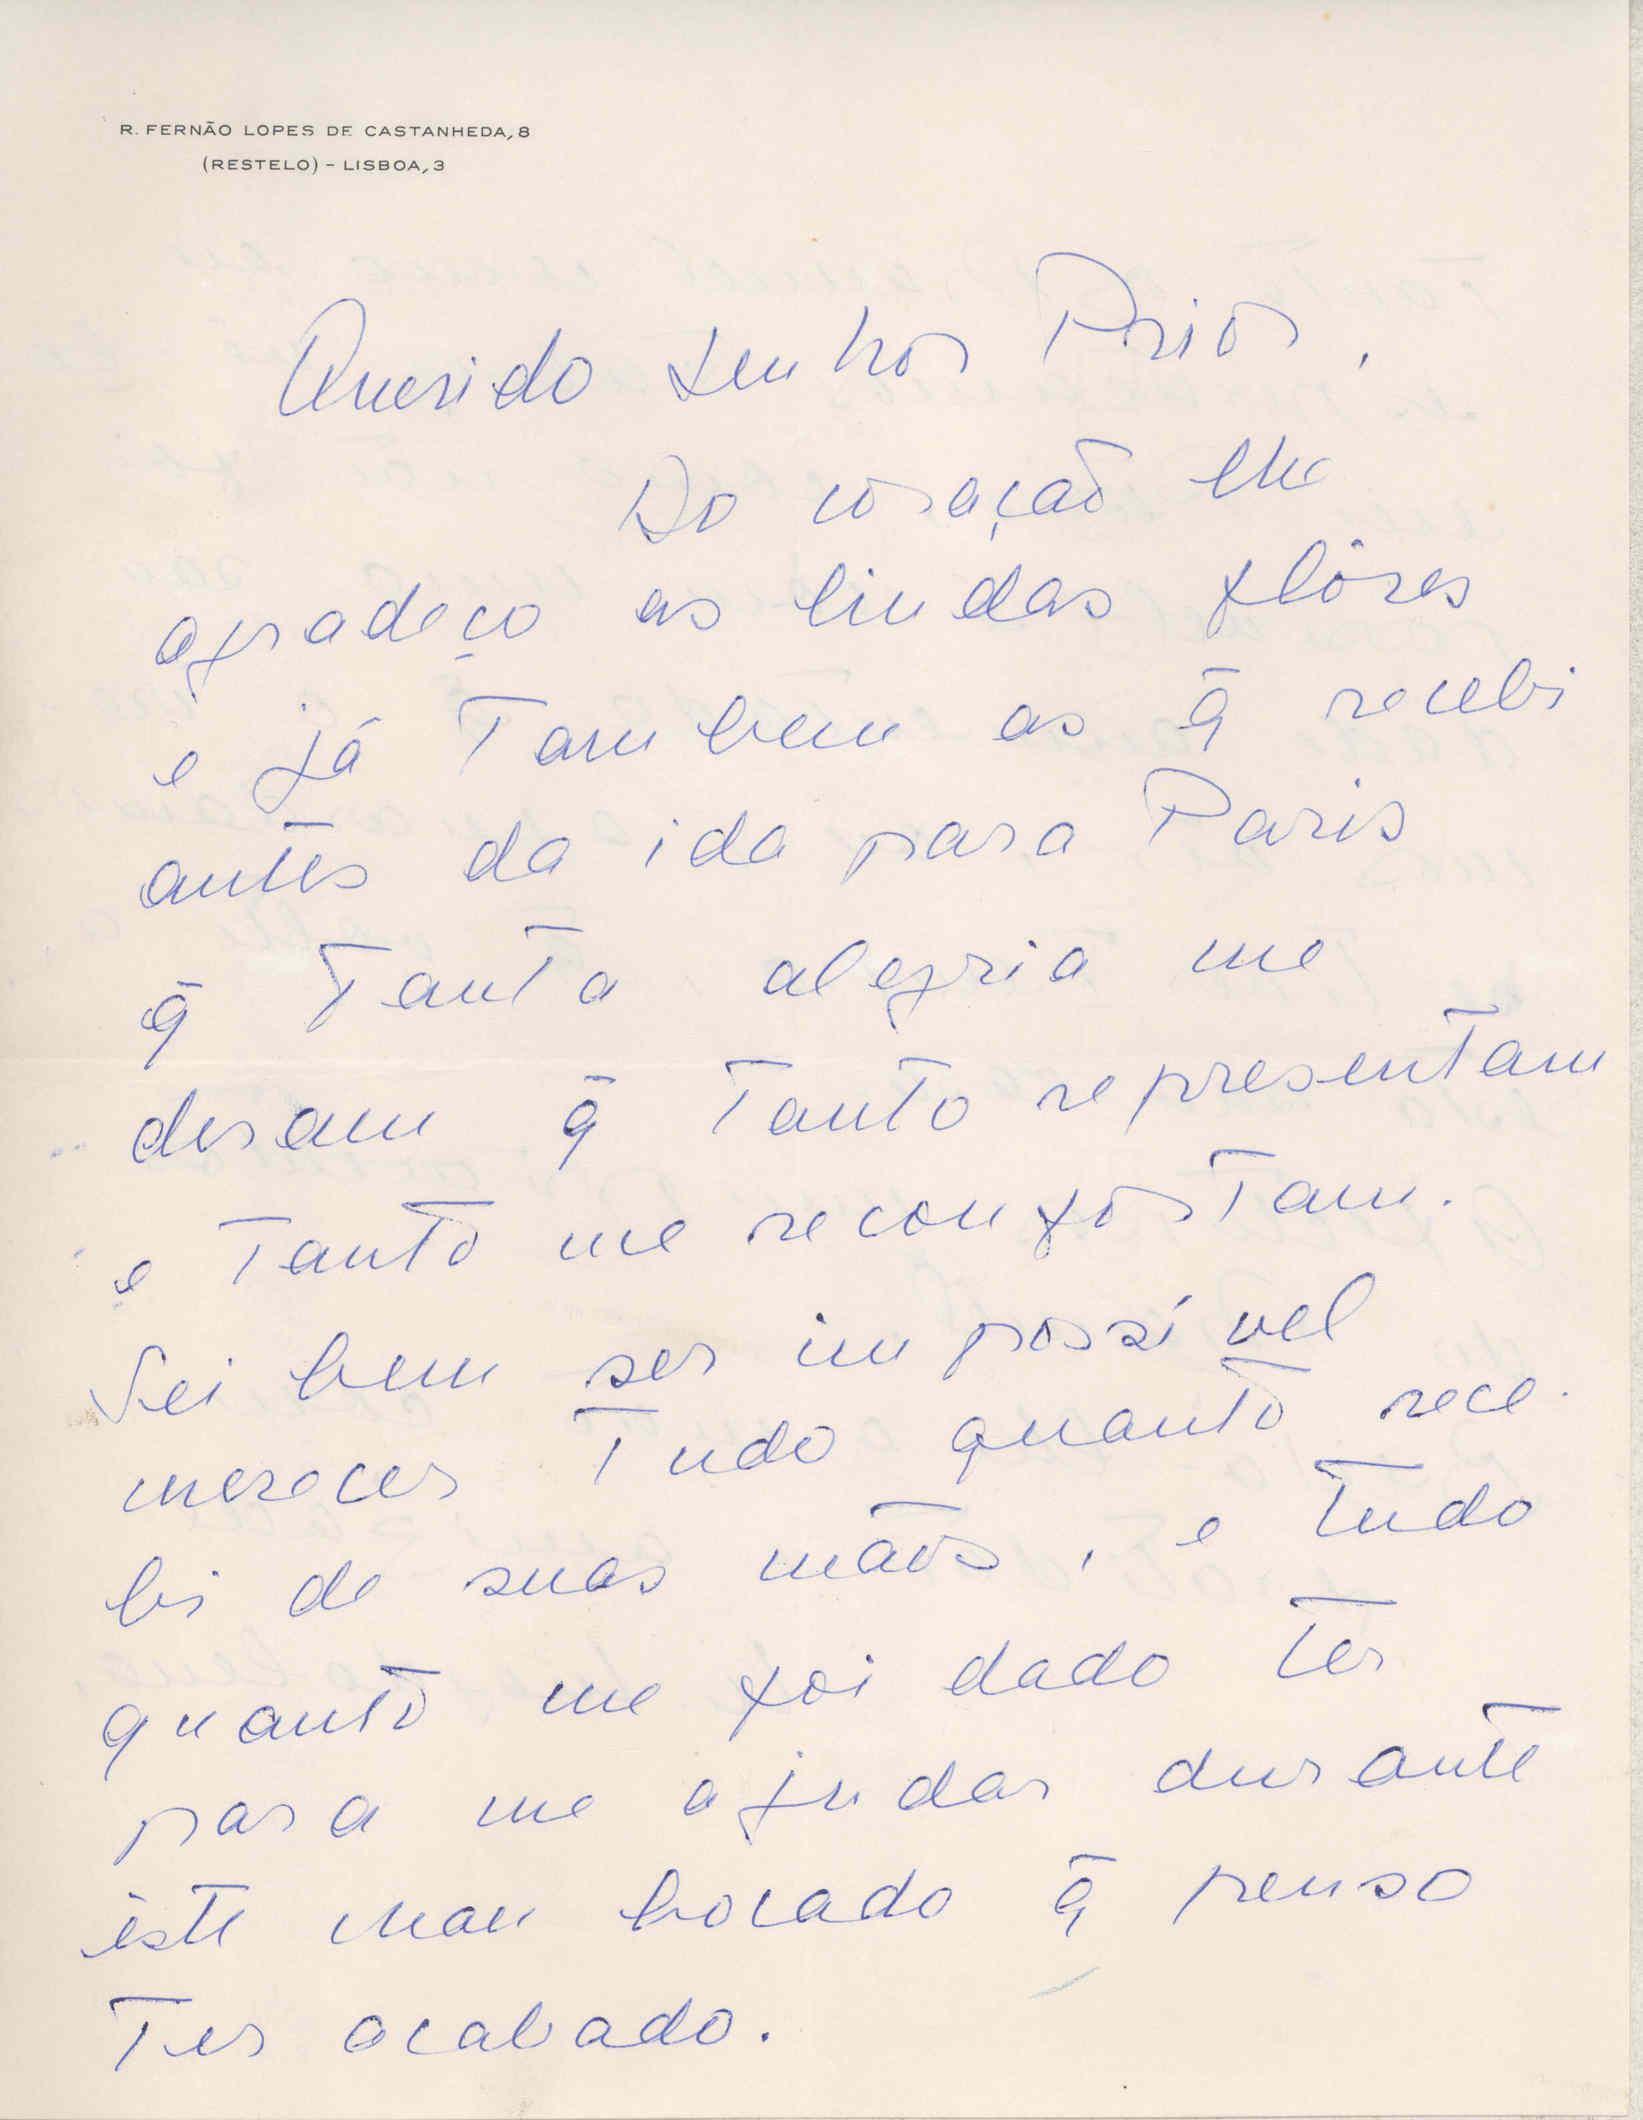 R. FERNÃO LOPES DE CASTANHEDA, 8
(RESTELO) - LISBOA, 3
Querido Senhor Prior,
Do coração lhe
agradeço as lindas flôres
e já tambem as q̄ recebi
antes da ida para Paris
q̄ tanta alegria me
deram q̄ tanto representam
e tanto me reconfortam.
Sei bem ser impossível
merecer tudo quanto rece-
bi de suas mãos, e tudo
quanto me foi dado ter
para me ajudar durante
êste mau bocado q̄ penso
ter acabado.